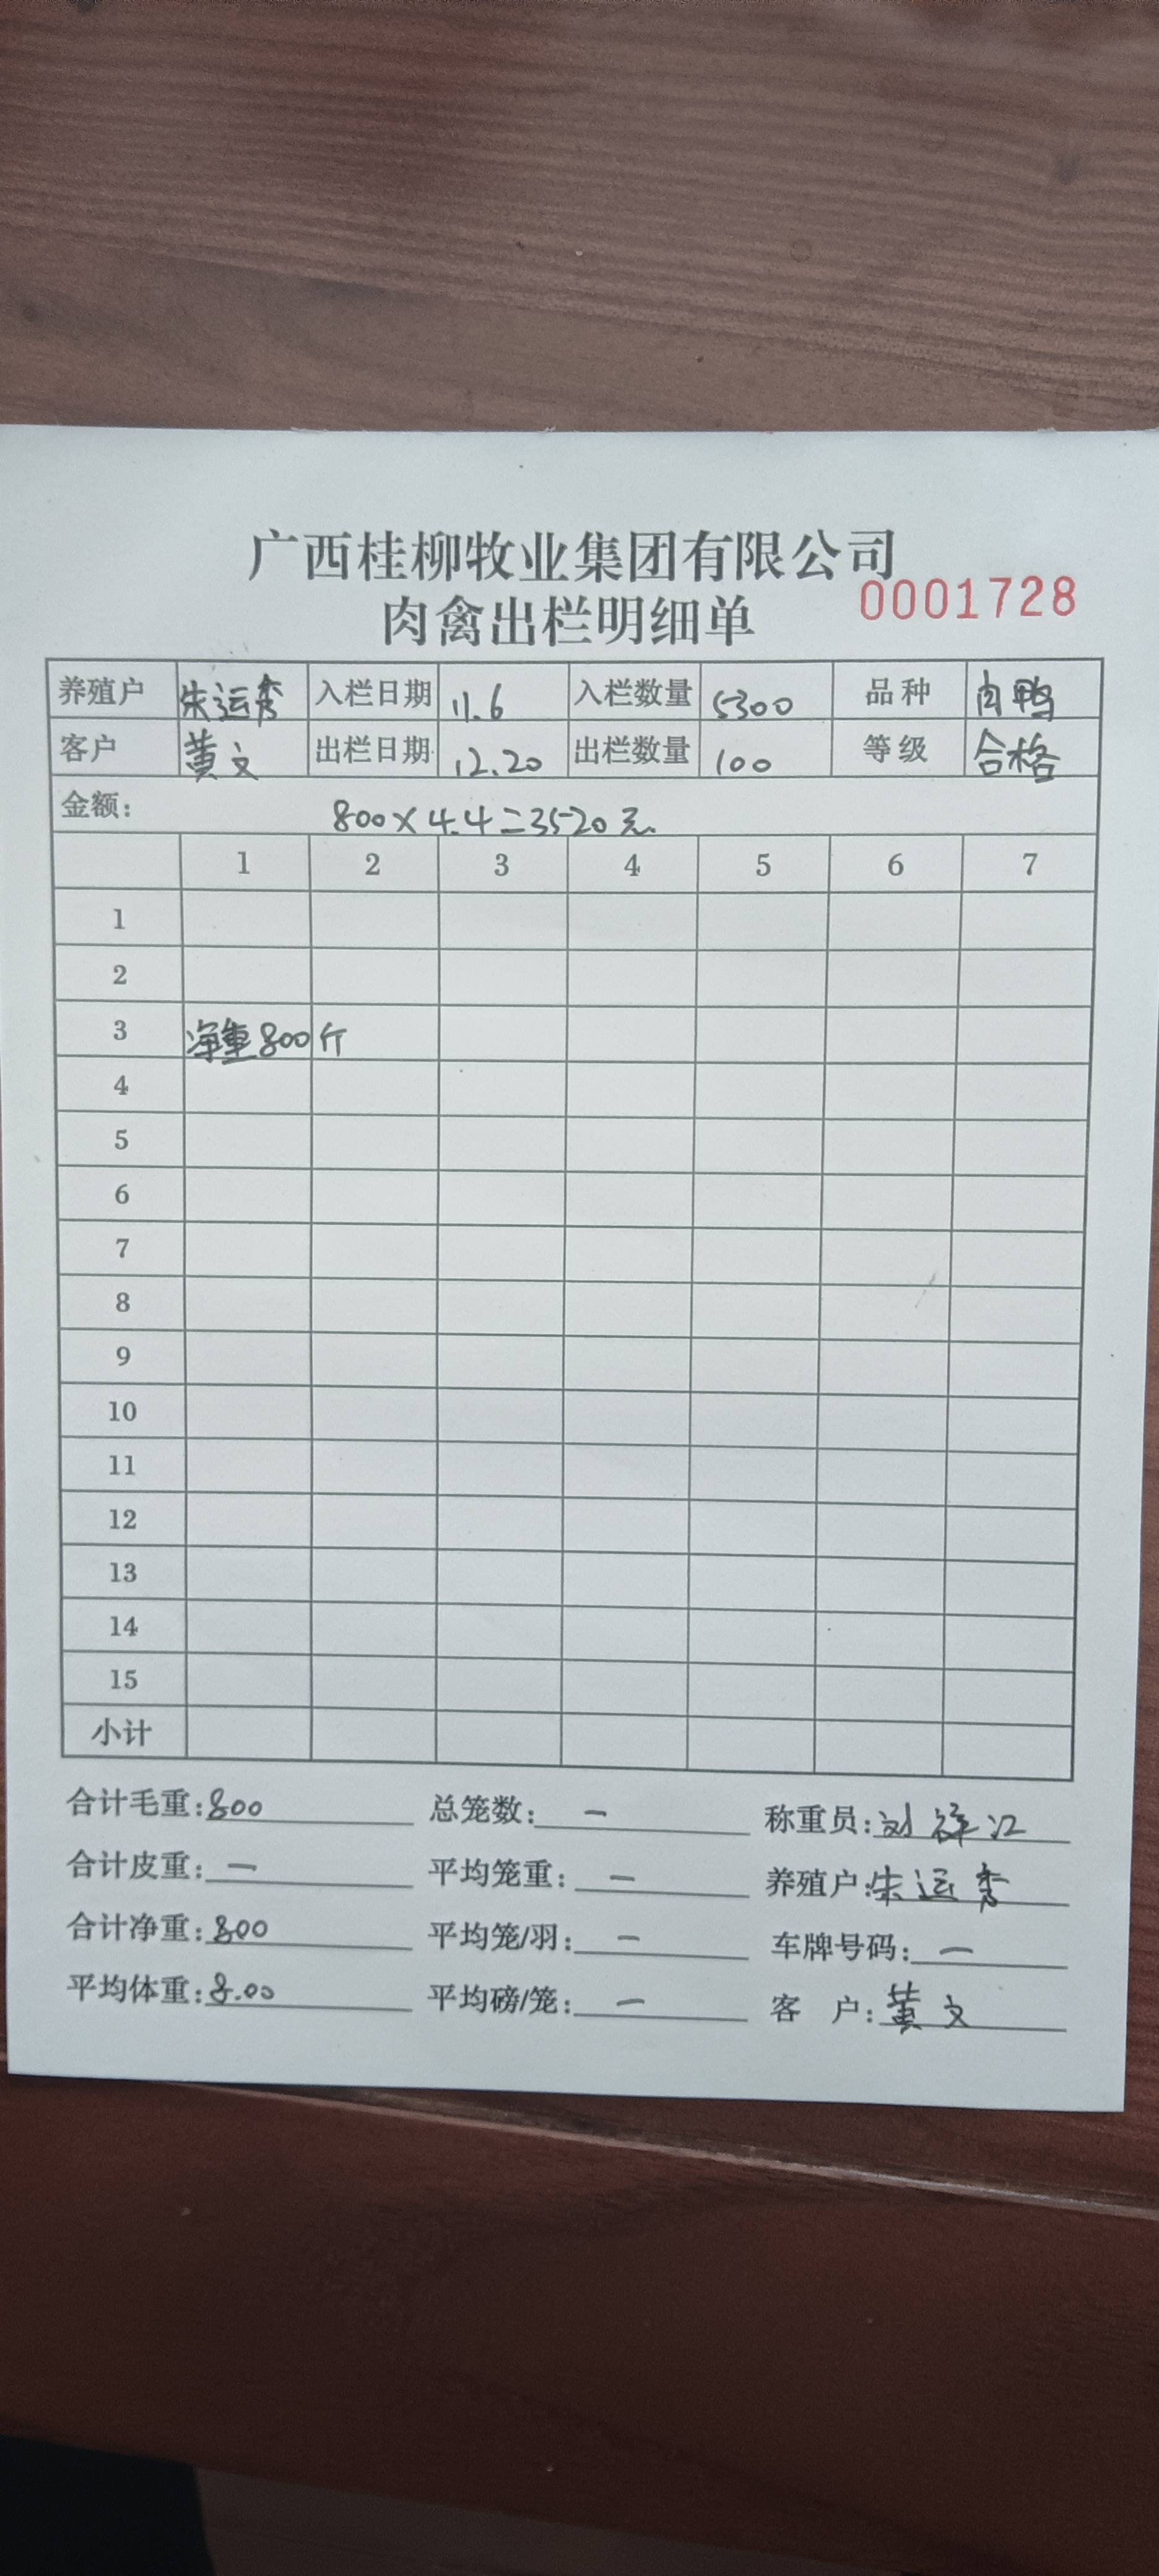 广西桂柳牧业集团有限公司
肉禽出栏明细单 0001728
养殖户 朱运秀 入栏日期 11.6 入栏数量 5300 品种 肉鸭
客户 黄文 出栏日期 12.20 出栏数量 100 等级 合格
金额: 800×4.4=3520元.
1 2 3 4 5 6 7
1
2
3 净重800斤
4
5
6
7
8
9
10
11
12
13
14
15
小计
合计毛重:800 总笼数:— 称重员:刘祥江
合计皮重:— 平均笼重:— 养殖户:朱运秀
合计净重:800 平均笼/羽:— 车牌号码:—
平均体重:8.00 平均磅/笼:— 客户:黄文